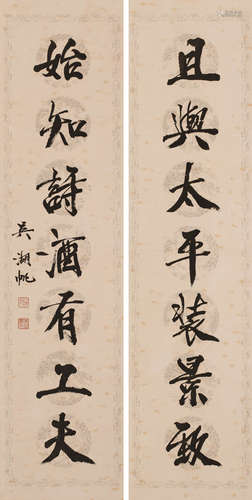 且與太平裝景致
始知詩酒有工夫
吳湖帆